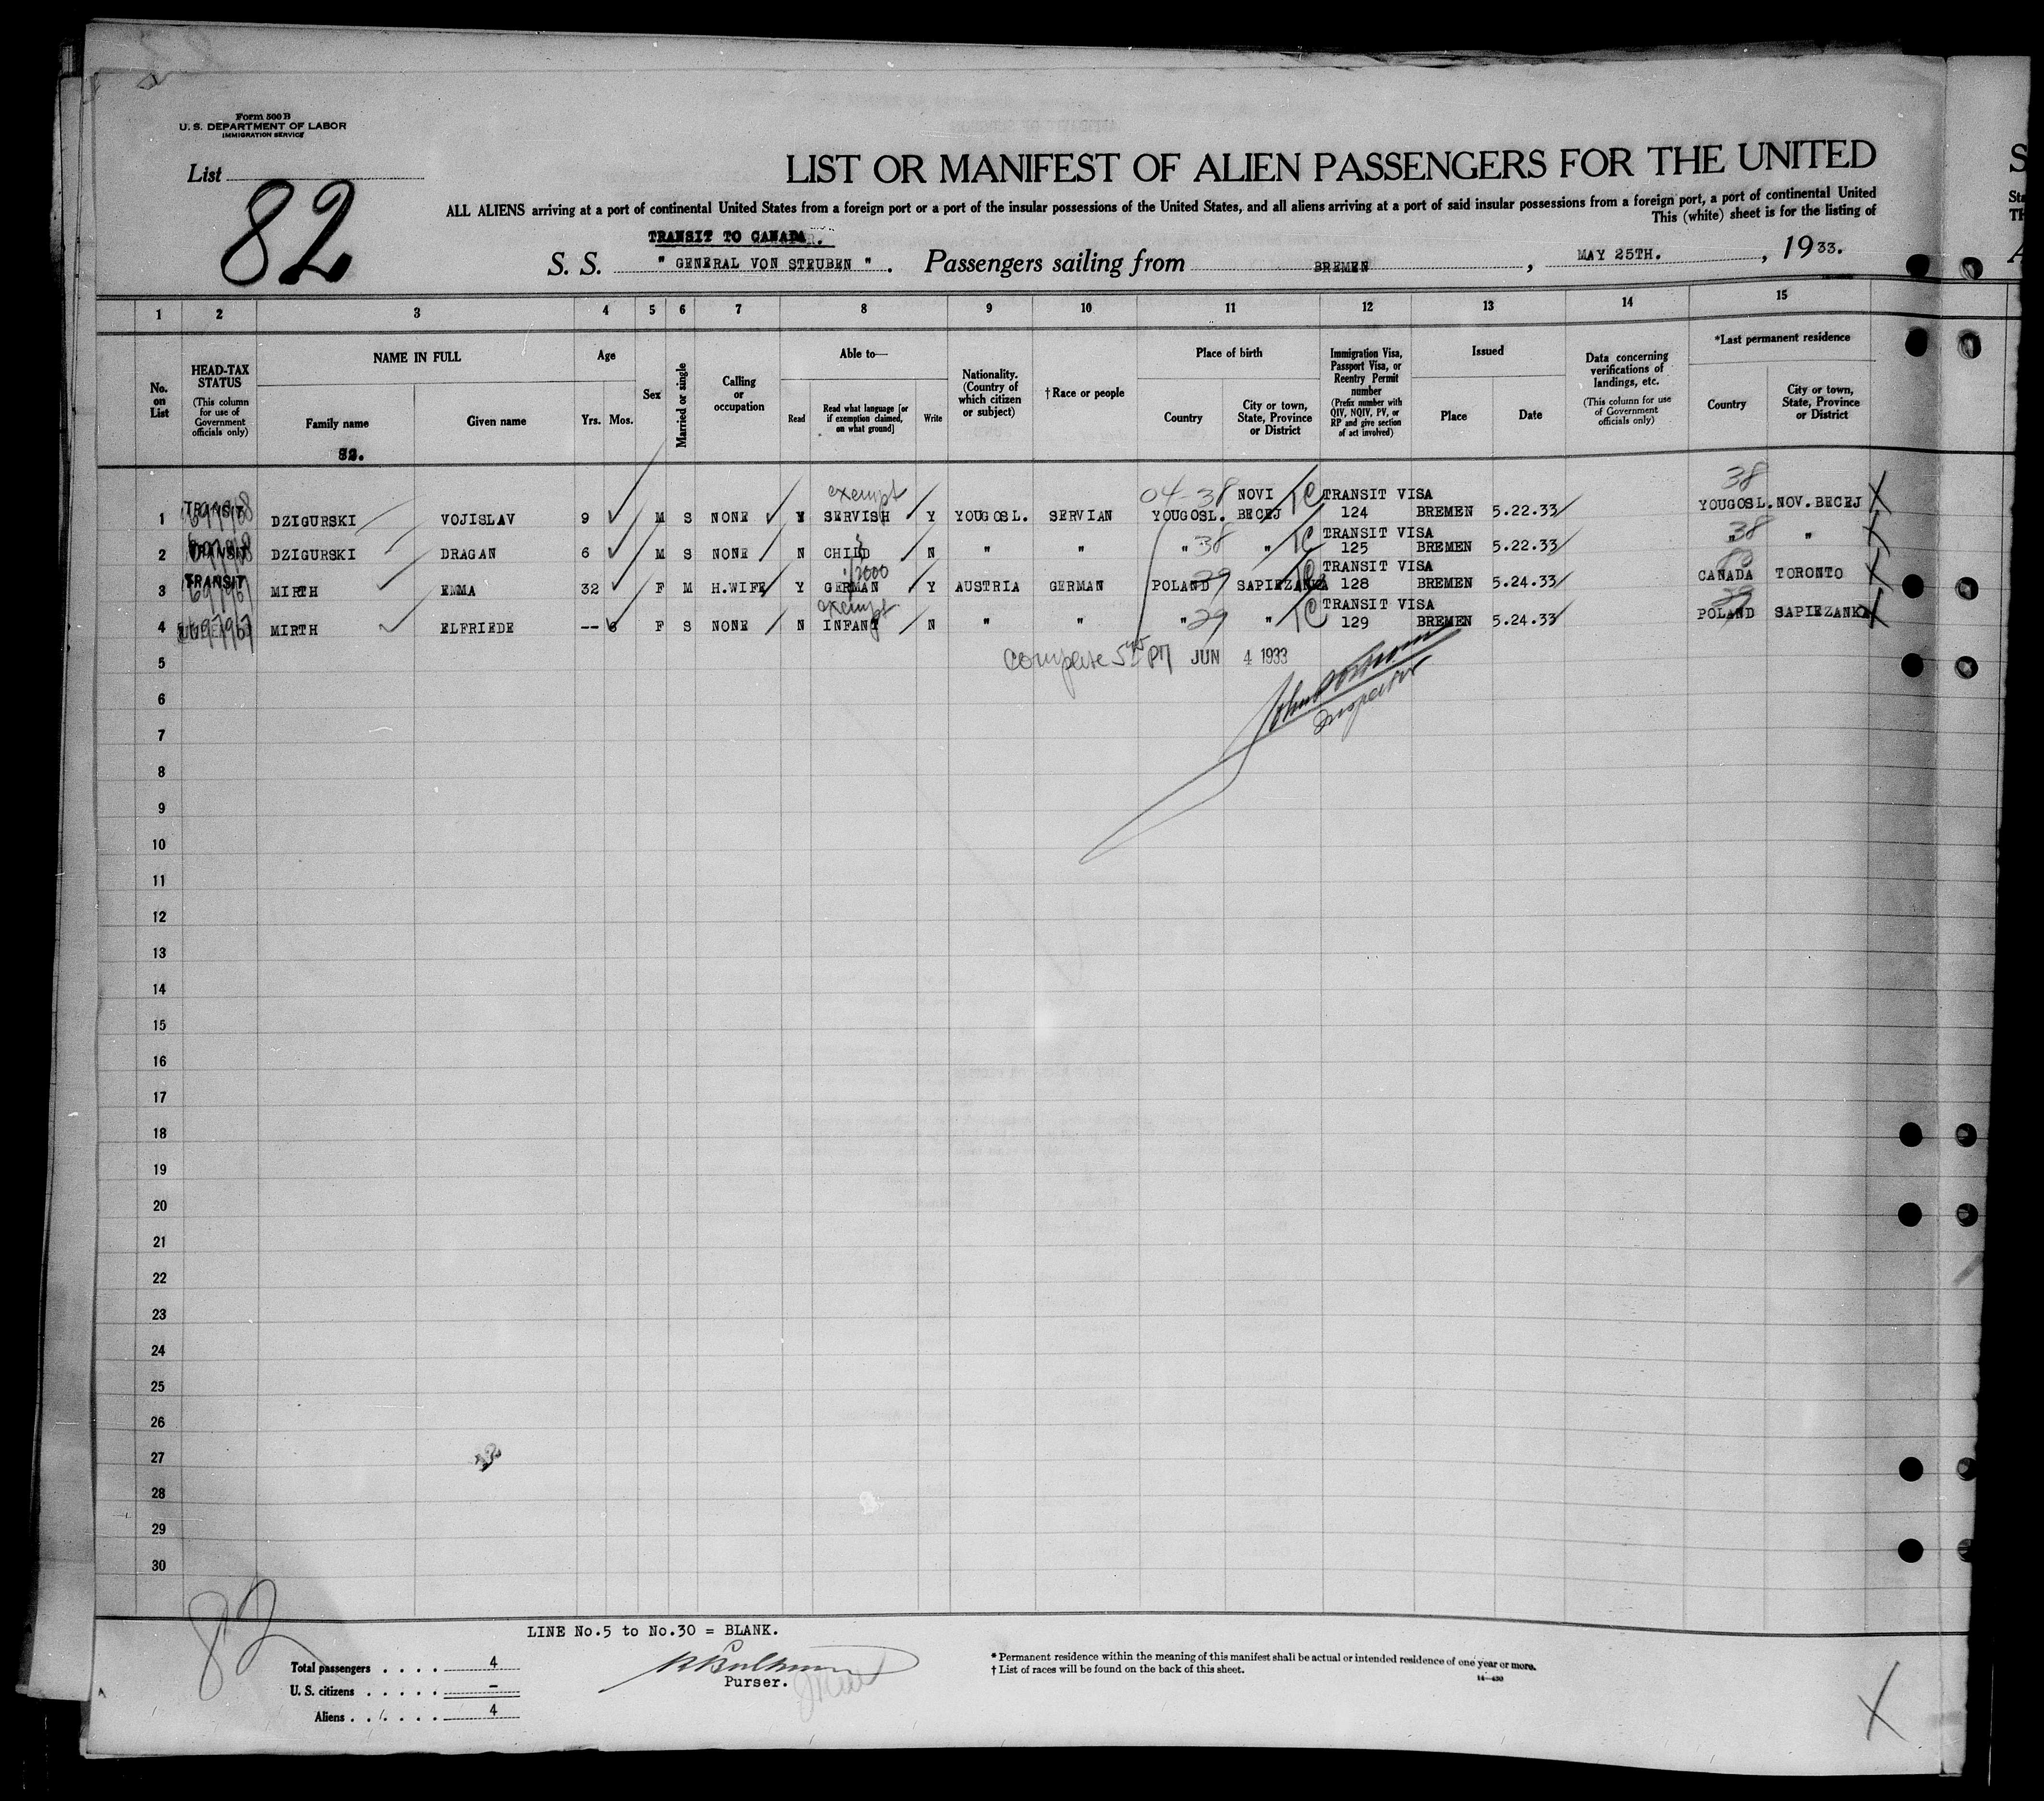 Form 500 B
U. S. DEPARTMENT OF LABOR
IMMIGRATION SERVICE
List
82
LIST OR MANIFEST OF ALIEN PASSENGERS FOR THE UNITED
ALL ALIENS arriving at a port of continental United States from a foreign port or a port of the insular possessions of the United States, and all aliens arriving at a port of said insular possessions from a foreign port, a port of continental United
This (white) sheet is for the listing of
TRANSIT TO CANADA.
S. S. " GENERAL VON STEUBEN ". Passengers sailing from BREMEN, MAY 25TH., 1933.
1 2 3 4 5 6 7 8 9 10 11 12 13 14 15
No. on List
HEAD-TAX STATUS
(This column for use of Government officials only)
NAME IN FULL
Family name
Given name
82.
Age
Yrs. Mos.
Sex
Married or single
Calling or occupation
Able to—
Read
Read what language [or if exemption claimed, on what ground]
Write
Nationality. (Country of which citizen or subject)
†Race or people
Place of birth
Country
City or town, State, Province or District
Immigration Visa, Passport Visa, or Reentry Permit number
(Prefix number with QIV, NQIV, PV, or RP and give section of act involved)
Issued
Place
Date
Data concerning verifications of landings, etc.
(This column for use of Government officials only)
*Last permanent residence
Country
City or town, State, Province or District
exempt 04-38 NOVI TC TRANSIT VISA 38
1 TRANSIT DZIGURSKI VOJISLAV 9 M S NONE Y SERVISH Y YOUGOSL. SERVIAN YOUGOSL. BECEJ 124 BREMEN 5.22.33 YOUGOSL. NOV. BECEJ X
TRANSIT VISA
2 DZIGURSKI DRAGAN 6 M S NONE N CHILD N " " " 38 " TC 125 BREMEN 5.22.33 " 38 " X
TRANSIT VISA
3 TRANSIT MIRTH EMMA 32 F M H.WIFE Y GERMAN Y AUSTRIA GERMAN POLAND 29 SAPIEZANKA 128 BREMEN 5.24.33 CANADA TORONTO X
exempt TRANSIT VISA
4 MIRTH ELFRIEDE -- 6 F S NONE N INFANT N " " " 29 " TC 129 BREMEN 5.24.33 POLAND SAPIEZANKA X
5 complete PM JUN 4 1933
Inspector
6
7
8
9
10
11
12
13
14
15
16
17
18
19
20
21
22
23
24
25
26
27
28
29
30
82
LINE No.5 to No.30 = BLANK.
Total passengers . . . . 4
U. S. citizens . . . . . –
Aliens . . . . . . 4
Purser.
* Permanent residence within the meaning of this manifest shall be actual or intended residence of one year or more.
† List of races will be found on the back of this sheet.
14—430
X